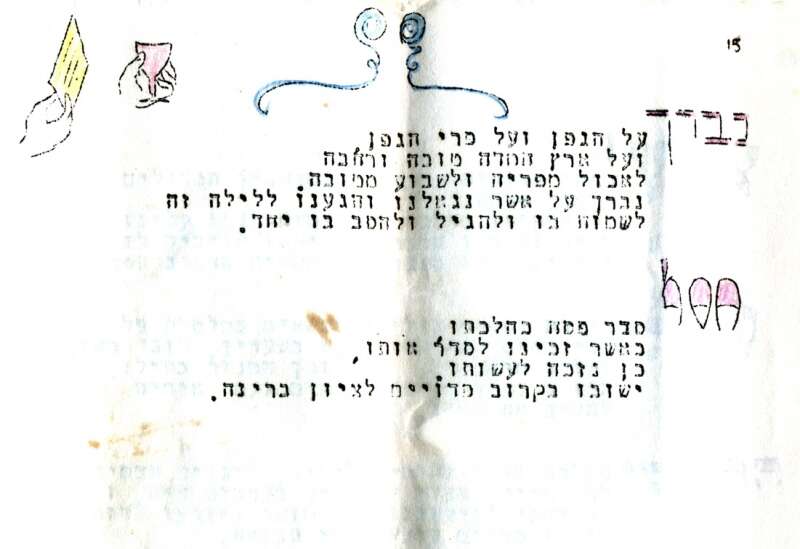 15
נברך
על הגפן ועל פרי הגפן,
ועל ארץ חמדה טובה ורחבה
לאכול מפריה ולשבוע מטובה.
נברך על אשר נגאלנו והגענו ללילה זה
לשמוח בו ולהגיל ולהטב בו יחד.
חסל
סדר פסח כהלכתו
כאשר זכינו לסדר אותו,
כן נזכה לעשותו.
ישובו בקרוב פדויים לציון ברינה.